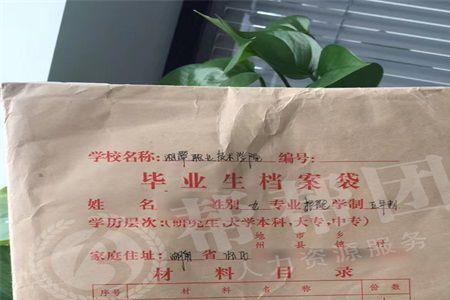 学校名称: 湘潭职业技术学院 编号:
毕业生档案袋
姓名 性别 女 专业 护理 学制 五年制
学历层次:(研究生,大学本科,大专,中专)
地 市 乡
州 县 镇
家庭住址: 湖南 省
材料目录
序号 材料名称 份数
人力资源服务
集团